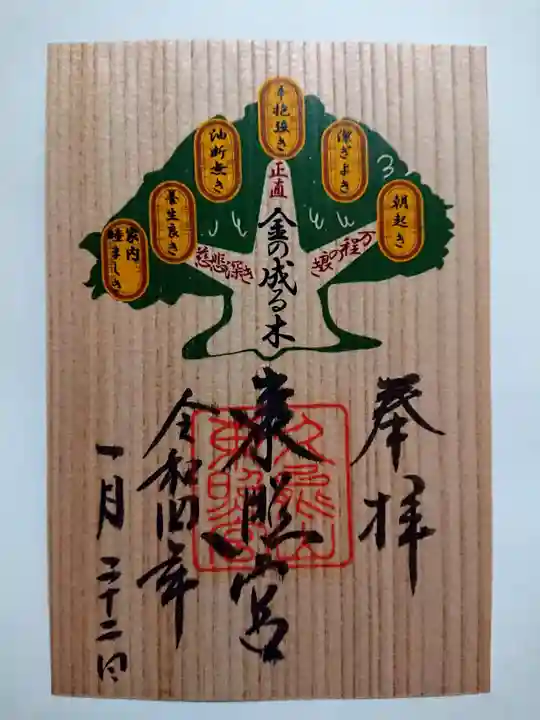 朝起き
潔ぎよき
辛抱強き
油断無き
養生良き
家内
睦ましき
万程の良き
正直
慈悲深き
金の成る木
奉拝
東照宮
令和四年
一月二十二日